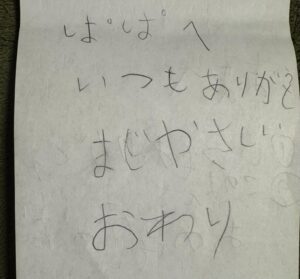 ぱぱへ
いつもありがと
まじやさしい
おわり